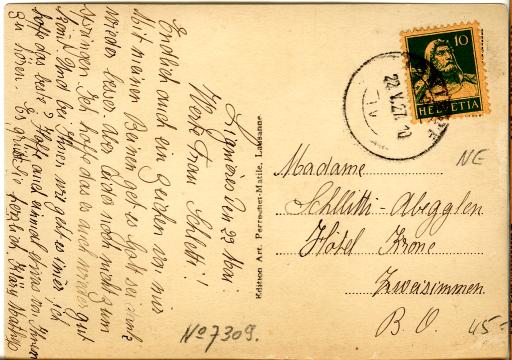 Lignières den 22 Mai.
Werte Frau Schletti!
Endlich auch ein Zeichen von mir
Mit meinen Beinen geht es Gott sei dank
wieder besser. Aber leider noch nicht zum
springen. Ich hoffe das es auch wieder gut
kommt. Und bei Ihnen wie geht es immer, ich
hoffe das beste. Hoffe auch einmal etwas von Ihnen
zu hören. Es grüsst Sie herzlich
Edition Art. Perrochet-Matile, Lausanne
10
HELVETIA
22.V.27.
Madame
Schletti-Abegglen
Hôtel Krone
Zweisimmen
B. O.
NE
No 7309.
45.-